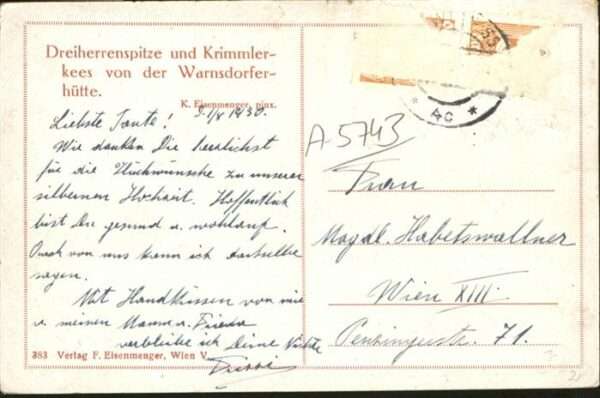 Dreiherrenspitze und Krimmler-
kees von der Warnsdorfer-
hütte.
K. Eisenmenger, pinx.
Liebste Tante! 9./V 1930.
Wir danken Dir herzlichst
für die Glückwünsche zu unserer
silbernen Hochzeit. Hoffentlich
bist Du gesund u. wohlauf.
Auch von uns kann ich dasselbe
sagen.
Mit Handküssen von mir
u. meinem Manne u.
verbleibe ich Deine Nichte
383 Verlag F. Eisenmenger, Wien V
55
* 4c *
A-5743
Frau
Magd. Habetswallner
Wien XIII.
Penzingerstr. 71.